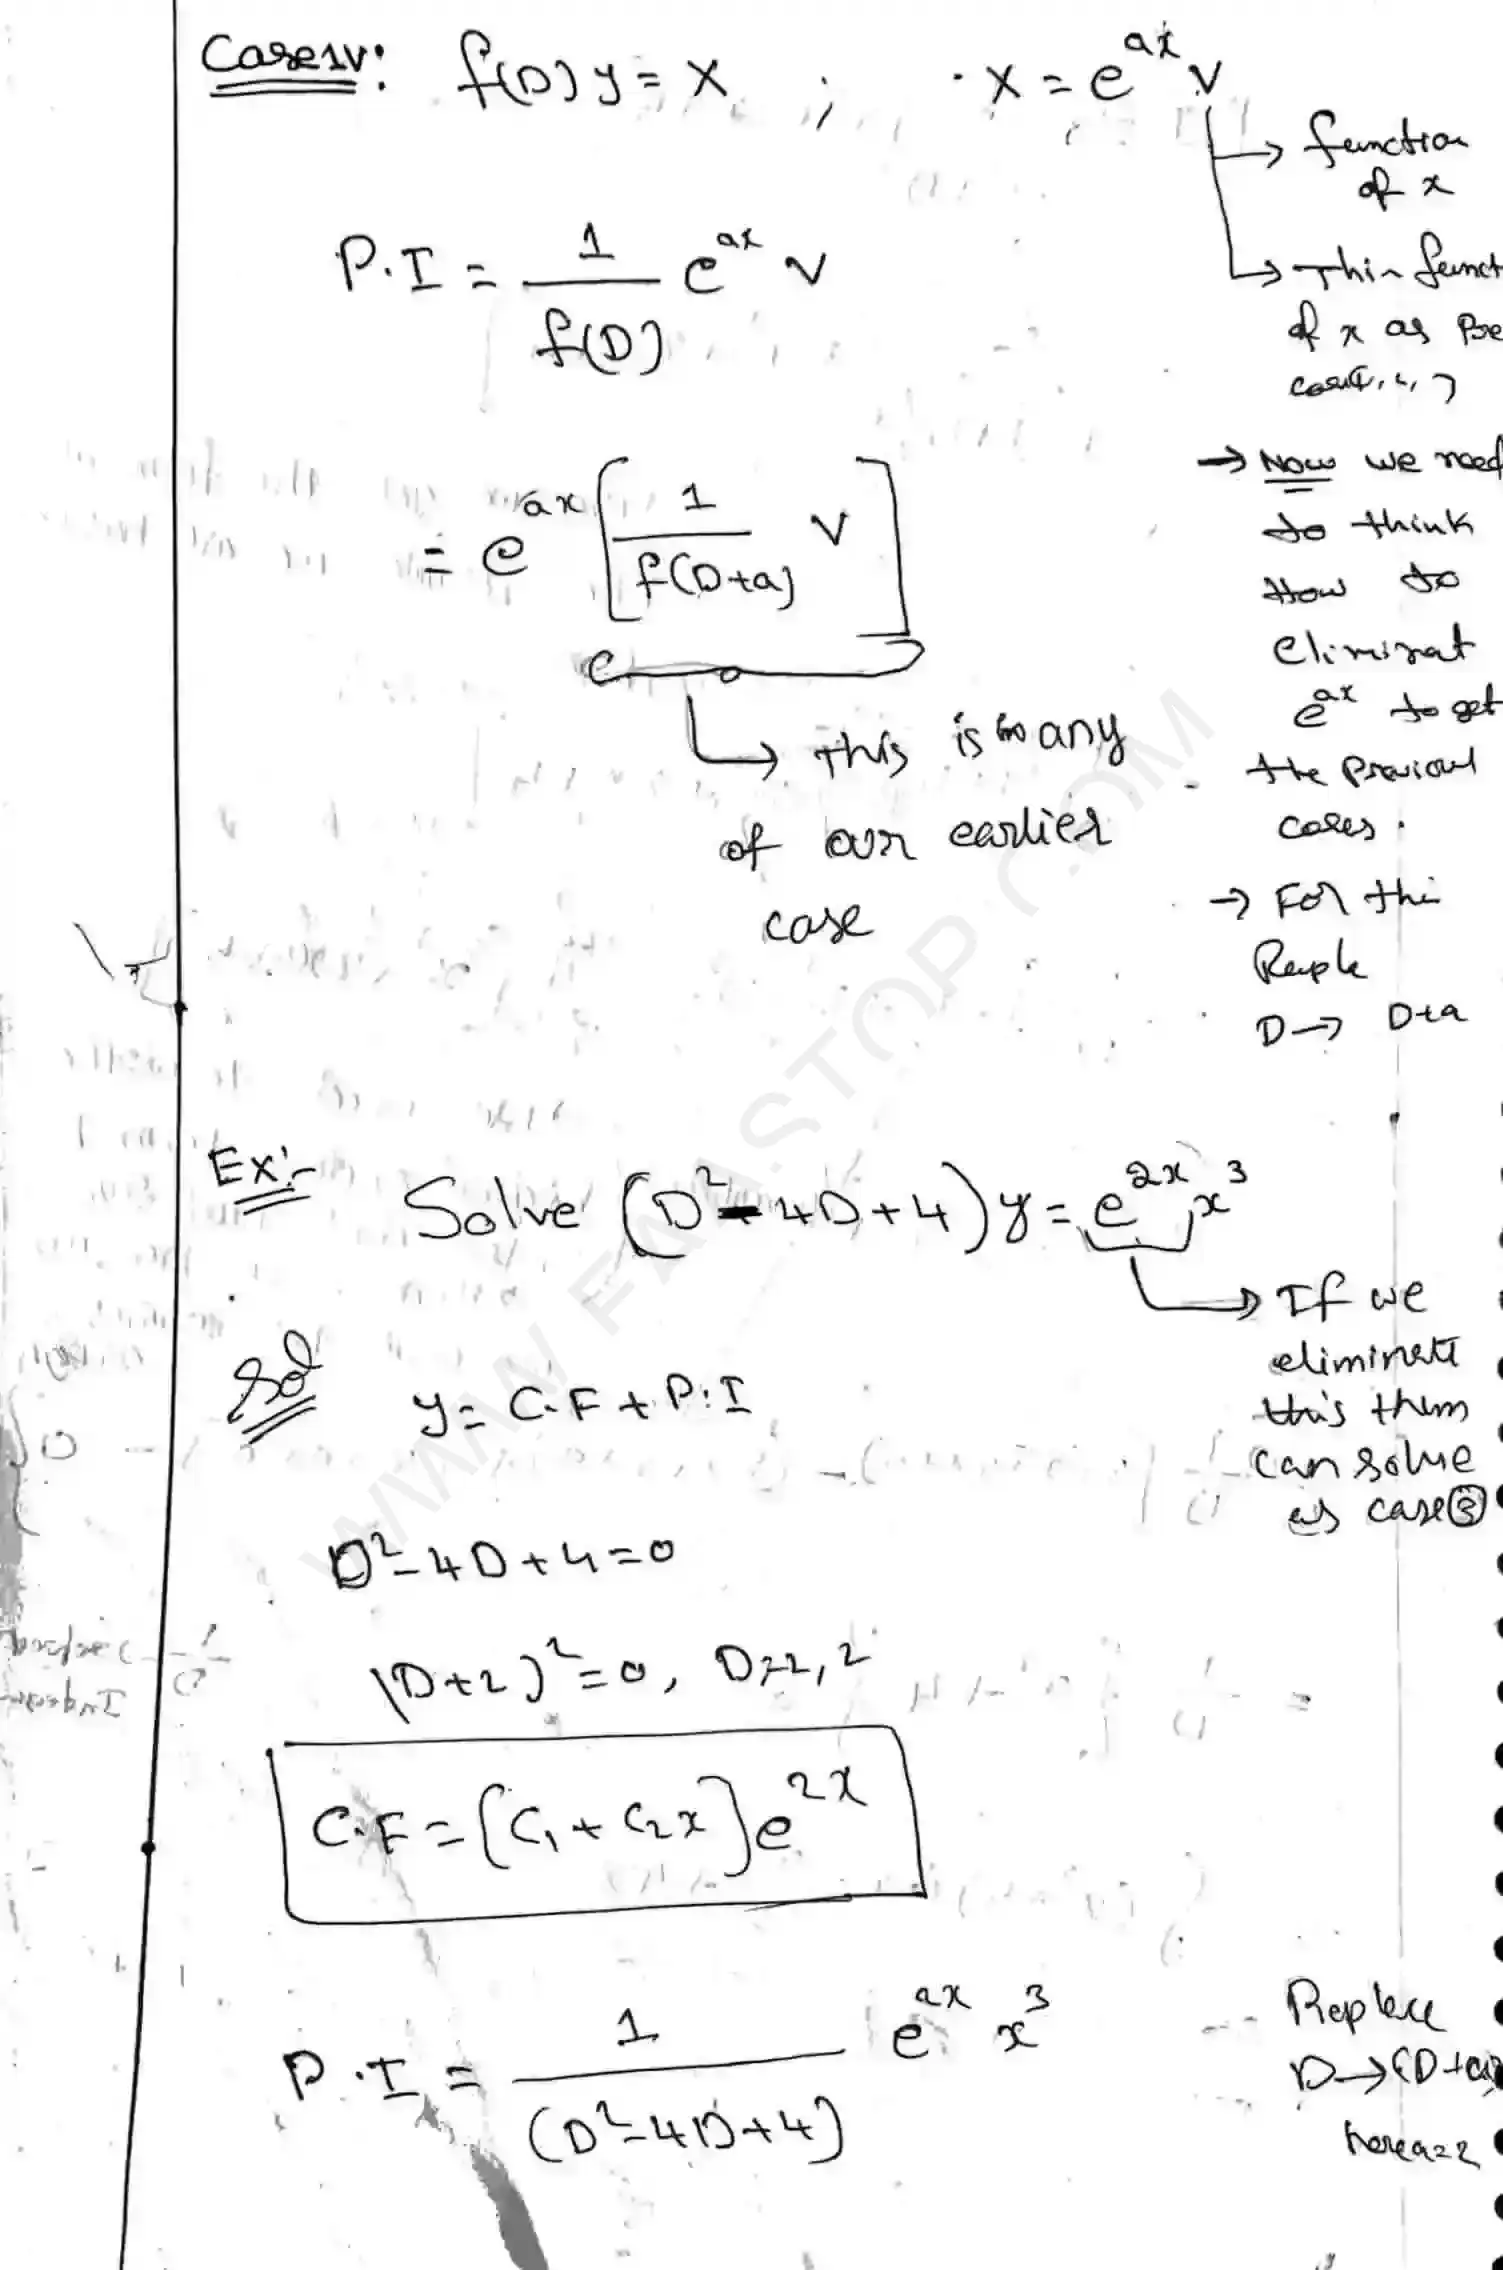 Case IV: f(D) y = X ; X = e^{ax} V
→ function
of x
→ This funct
of x as Pre
P.I = 1/f(D) e^{ax} V
= e^{ax} [ 1/f(D+a) V ]
→ this is in any
of our earlier
case
→ Now we need
to think
How to
eliminat
e^{ax} to get
the previous
cases.
→ For this
Reple
D → D+a
Ex:- Solve (D^2 - 4D + 4) y = e^{2x} x^3
→ If we
eliminate
this them
can solve
as case ③
Sol y = C.F + P.I
D^2 - 4D + 4 = 0
(D+2)^2 = 0, D=2, 2
C.F = [C1 + C2 x] e^{2x}
P.I = 1/(D^2 - 4D + 4) e^{2x} x^3
Replace
D → (D+a)
here a=2
WWW.FAASTOP.COM